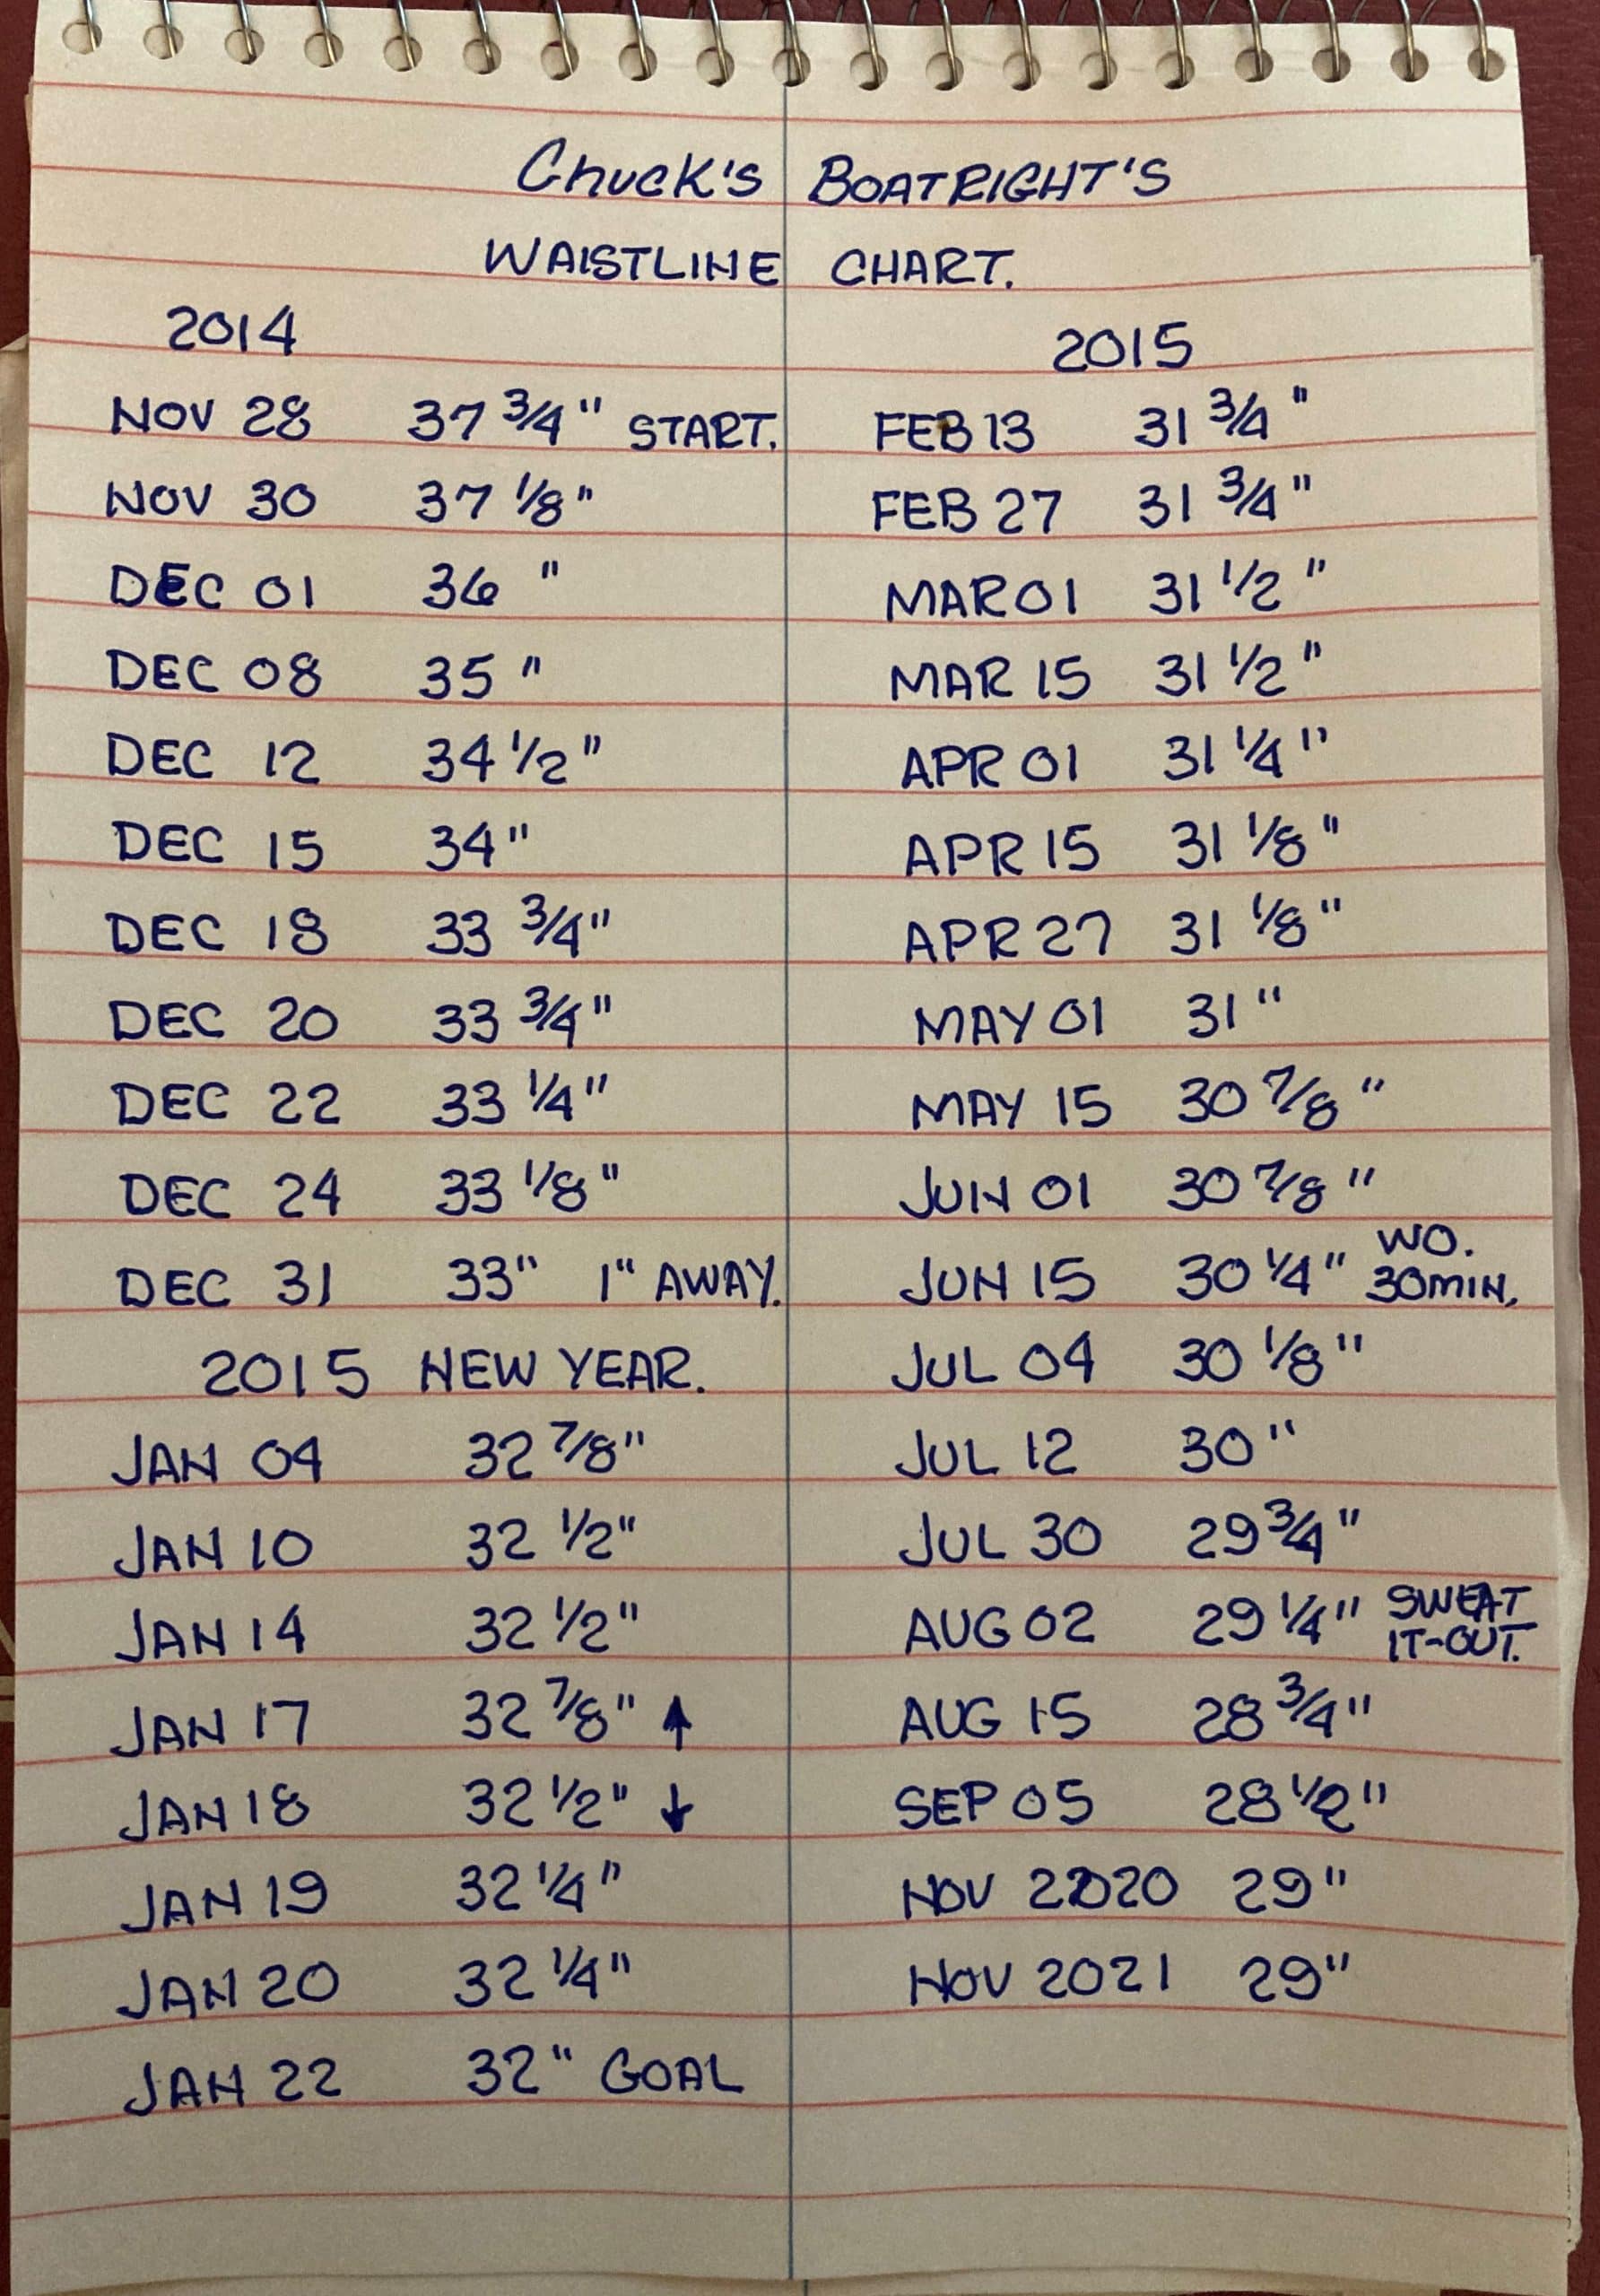 Chuck's BOATRIGHT'S
WAISTLINE CHART.
2014
NOV 28 37 3/4" START.
NOV 30 37 1/8"
DEC 01 36 "
DEC 08 35 "
DEC 12 34 1/2"
DEC 15 34"
DEC 18 33 3/4"
DEC 20 33 3/4"
DEC 22 33 1/4"
DEC 24 33 1/8"
DEC 31 33" 1" AWAY.
2015 NEW YEAR.
JAN 04 32 7/8"
JAN 10 32 1/2"
JAN 14 32 1/2"
JAN 17 32 7/8" ↑
JAN 18 32 1/2" ↓
JAN 19 32 1/4"
JAN 20 32 1/4"
JAN 22 32" GOAL
2015
FEB 13 31 3/4"
FEB 27 31 3/4"
MAR 01 31 1/2"
MAR 15 31 1/2"
APR 01 31 1/4"
APR 15 31 1/8"
APR 27 31 1/8"
MAY 01 31"
MAY 15 30 7/8"
JUN 01 30 7/8"
JUN 15 30 1/4" WO.
30MIN.
JUL 04 30 1/8"
JUL 12 30"
JUL 30 29 3/4"
AUG 02 29 1/4" SWEAT
IT-OUT.
AUG 15 28 3/4"
SEP 05 28 1/2"
NOV 2020 29"
NOV 2021 29"